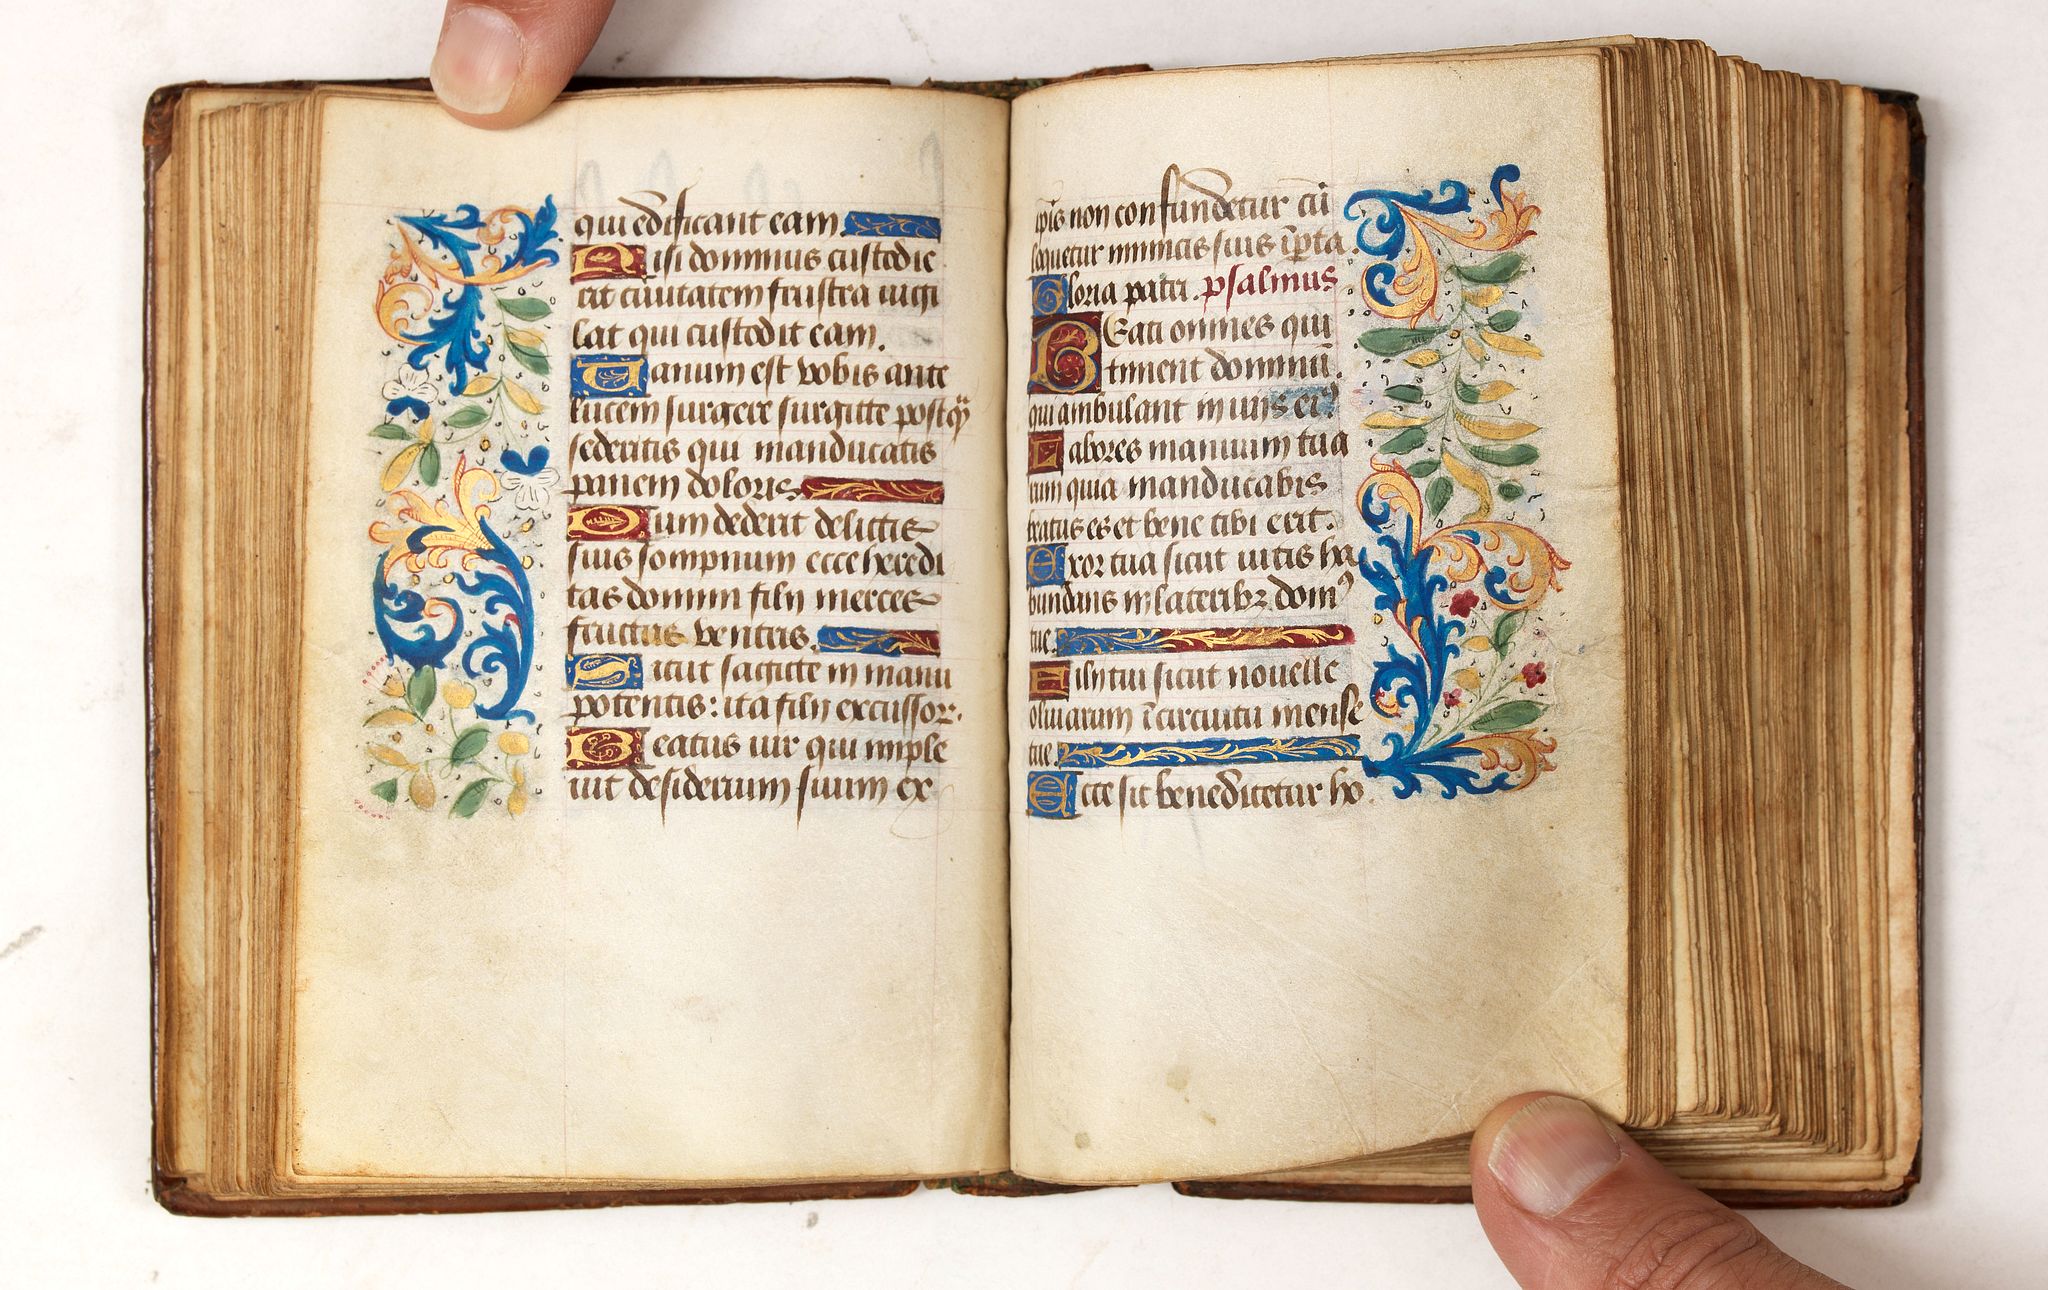 qui edificant eam.
Nisi dominus custodie
rit ciuitatem frustra uigi
lat qui custodit eam.
Uanum est vobis ante
lucem surgere surgitte postqͣ
sederitis qui manducatis
panem doloris.
Cum dederit delictis
suis sompnum ecce heredi
tas domini filij merces
fructus ventris.
Sicut sagitte in manu
potentis: ita filij excussor.
Beatus uir qui imple
uit desiderium suum ex
ip̄is non confundetur cū
loquetur inimicis suis ī pta
Gloria patri. psalmus
Beati omnes qui
timent dominū.
qui ambulant in uijs eiꝰ.
Labores manuum tua
rum quia manducabis
beatus es et bene tibi erit.
Uxor tua sicut uitis ha
bundans in lateribꝫ domꝰ
tue.
Filij tui sicut nouelle
oliuarum ī circuitu mense
tue.
Ecce sic benedicetur ho